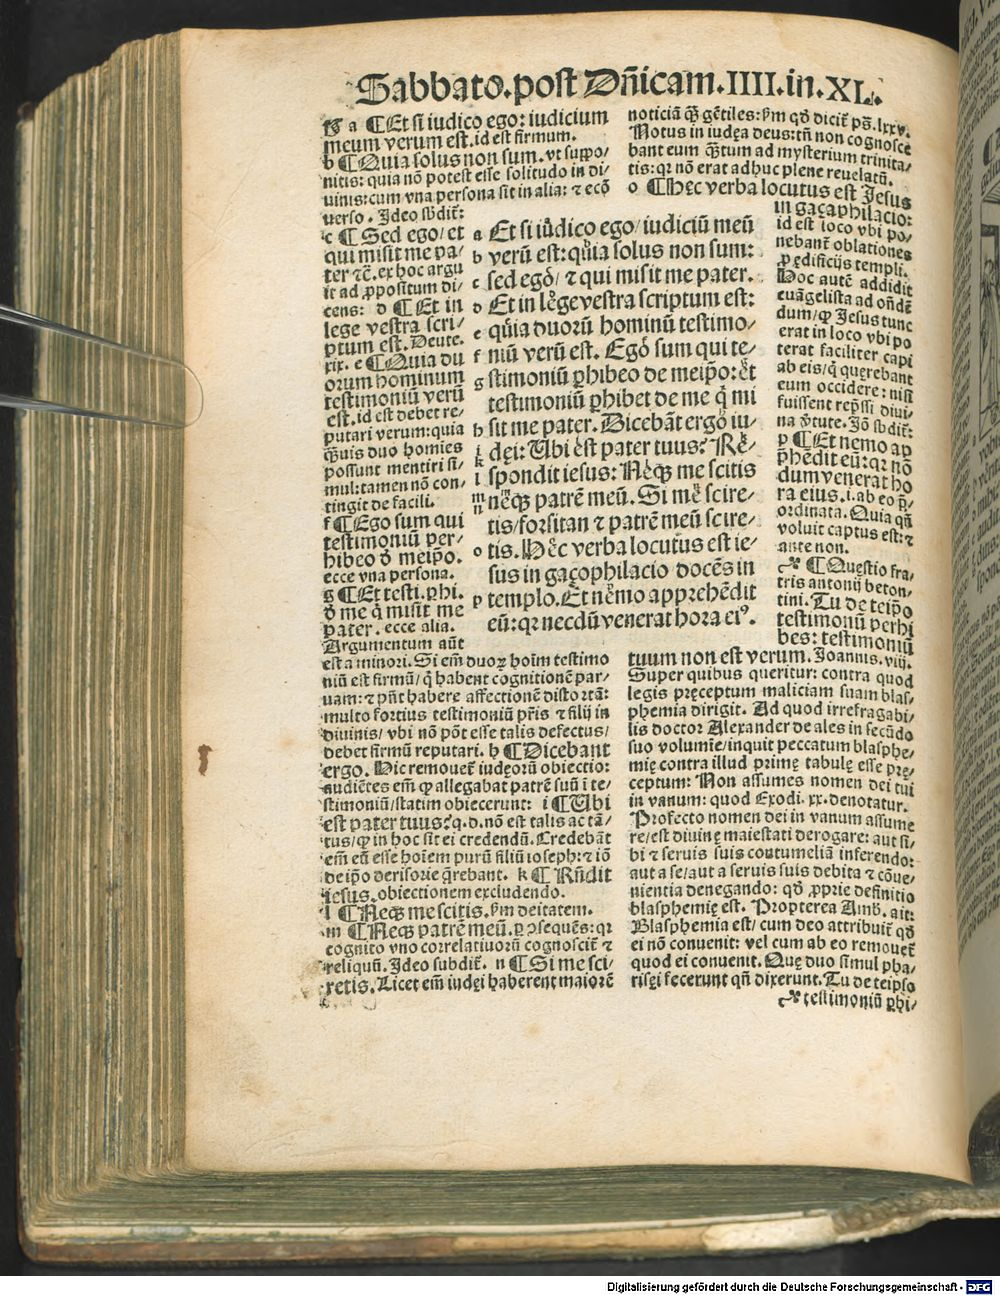 Sabbato.post Dñicam.IIII.in.XL.
a ¶Et si iudico ego: iudicium
meum verum est. id est firmum.
b ¶Quia solus non sum. vt suppo-
nitis: quia nõ potest esse solitudo in di-
uinis: cum vna persona sit in alia: ⁊ ecõ
uerso. Ideo sbdit̃:
c ¶Sed ego/ et
qui misit me pa/
ter ⁊c̃. ex hoc argu
it ad ꝓpositum di/
cens: d ¶Et in
lege vestra scri/
ptum est. Deute.
xix. e ¶Quia du
orum hominum
testimoniũ verũ
est. id est debet re/
putari verum: quia
q̃uis duo homies
possunt mentiri si-
mul: tamen nõ con-
tingit de facili.
f ¶Ego sum qui
testimoniũ per/
hibeo d̃ meip̃o.
ecce vna persona.
g ¶Et testi. ꝑhi.
d̃ me q̃ misit me
pater. ecce alia.
Argumentum aũt
est a minori. Si em̃ duoꝝ hoĩm testimo
niũ est firmũ/ q̃ habent cognitionẽ par/
uam: ⁊ pñt habere affectionẽ distortã:
multo fortius testimoniũ p̃ris ⁊ filij in
diuinis/ vbi nõ põt esse talis defectus/
debet firmũ reputari. h ¶Dicebant
ergo. Hic remouet̃ iudęorũ obiectio:
audiẽtes em̃ ꝙ allegabat patrẽ suũ i te/
stimoniũ/ statim obiecerunt: i ¶Ubi
est pater tuus? q.d. nõ est talis ac tã/
tus/ ꝙ in hoc sit ei credendũ. Credebãt
em̃ eũ esse hoĩem purũ filiũ ioseph: ⁊ iõ
de ip̃o derisorie q̃rebant. k ¶Rñdit
iesus. obiectionem excludendo.
l ¶Neqꝫ me scitis. ẜm deitatem.
m ¶Neqꝫ patrẽ meũ. ꝑ ꝯsequẽs: qꝛ
cognito vno correlatiuorũ cognoscit̃ ⁊
reliquũ. Ideo subdit̃. n ¶Si me sci/
retis. Licet em̃ iudęi haberent maiorẽ
a Et si iudico ego/ iudiciũ meũ
b verũ est: quia solus non sum:
c sed ego/ ⁊ qui misit me pater.
d Et in lege vestra scriptum est:
e quia duorũ hominũ testimo/
f niũ verũ est. Ego sum qui te/
g stimoniũ ꝑhibeo de meip̃o: et
testimoniũ ꝑhibet de me q̃ mi
h sit me pater. Dicebãt ergo iu/
i dęi: Ubi est pater tuus? Re/
k spondit iesus: Neqꝫ me scitis
l neqꝫ patrẽ meũ. Si me scire/
m n tis/ forsitan ⁊ patrẽ meũ scire/
o tis. Hęc verba locutus est ie/
sus in gaçophilacio docẽs in
p templo. Et nemo apprehẽdit
eũ: qꝛ necdũ venerat hora eiꝰ.
noticiã q̃ꝫ gẽtiles: ẜm qd̃ dicit̃ p̃s. lxxv.
Notus in iudęa deus: tñ non cognosce
bant eum q̃ntum ad mysterium trinita/
tis: qꝛ nõ erat adhuc plene reuelatũ.
o ¶Hęc verba locutus est Jesus
in gaçaphilacio:
id est loco vbi po/
nebant̃ oblationes
ꝓ ędificijs templi.
Hoc autẽ addidit
euãgelista ad oñdẽ
dum/ ꝙ Jesus tunc
erat in loco vbi po
terat faciliter capi
ab eis/ q̃ quęrebant
eum occidere: nisi
fuissent rep̃ssi diui/
na ṽtute. Jõ sbdit̃:
p ¶Et nemo ap
p̃hẽdit eũ: qꝛ nõ
dum venerat ho
ra eius. i. ab eo p̃-
ordinata. Quia qñ
voluit captus est: ⁊
ante non.
¶Questio fra/
tris antonij beton/
tini. Tu de teip̃o
testimoniũ perhi
bes: testimoniũ
tuum non est verum. Joannis. viij.
Super quibus queritur: contra quod
legis pręceptum maliciam suam blas/
phemia dirigit. Ad quod irrefragabi/
lis doctor Alexander de ales in secũdo
suo volumĩe/ inquit peccatum blasphe/
mię contra illud primę tabulę esse prę/
ceptum: Non assumes nomen dei tui
in vanum: quod Exodi. xx. denotatur.
Profecto nomen dei in vanum assume
re/ est diuinę maiestati derogare: aut si/
bi ⁊ seruis suis contumeliã inferendo:
aut a se/ aut a seruis suis debita ⁊ cõue/
nientia denegando: qd̃ ꝓprie definitio
blasphemię est. Propterea Amb. ait:
Blasphemia est/ cum deo attribuit̃ qd̃
ei nõ conuenit: vel cum ab eo remouet̃
quod ei conuenit. Quę duo simul pha/
risęi fecerunt qñ dixerunt. Tu de teipso
testimoniũ ꝑhi/
Digitalisierung gefördert durch die Deutsche Forschungsgemeinschaft - DFG